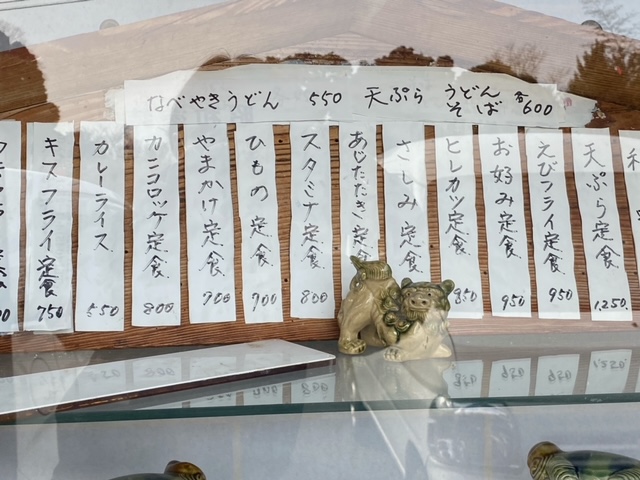 なべやきうどん 550 天ぷら うどん そば 各600
天ぷら定食 1,250
えびフライ定食 950
お好み定食 950
ヒレカツ定食 850
さしみ定食
あじたたき定食
スタミナ定食 800
ひもの定食 700
やまかけ定食 700
カニコロッケ定食 800
カレーライス 550
キスフライ定食 750